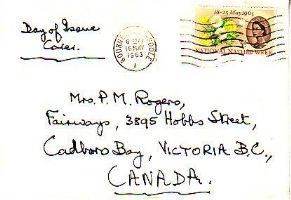 Day of Issue
Cover.
16 MAY
1963
18-25 May 1963
NATIONAL NATURE WEEK
Mrs. P. M. Rogers,
Fairways, 3895 Hobbs Street,
Cadboro Bay, VICTORIA B.C.,
CANADA.